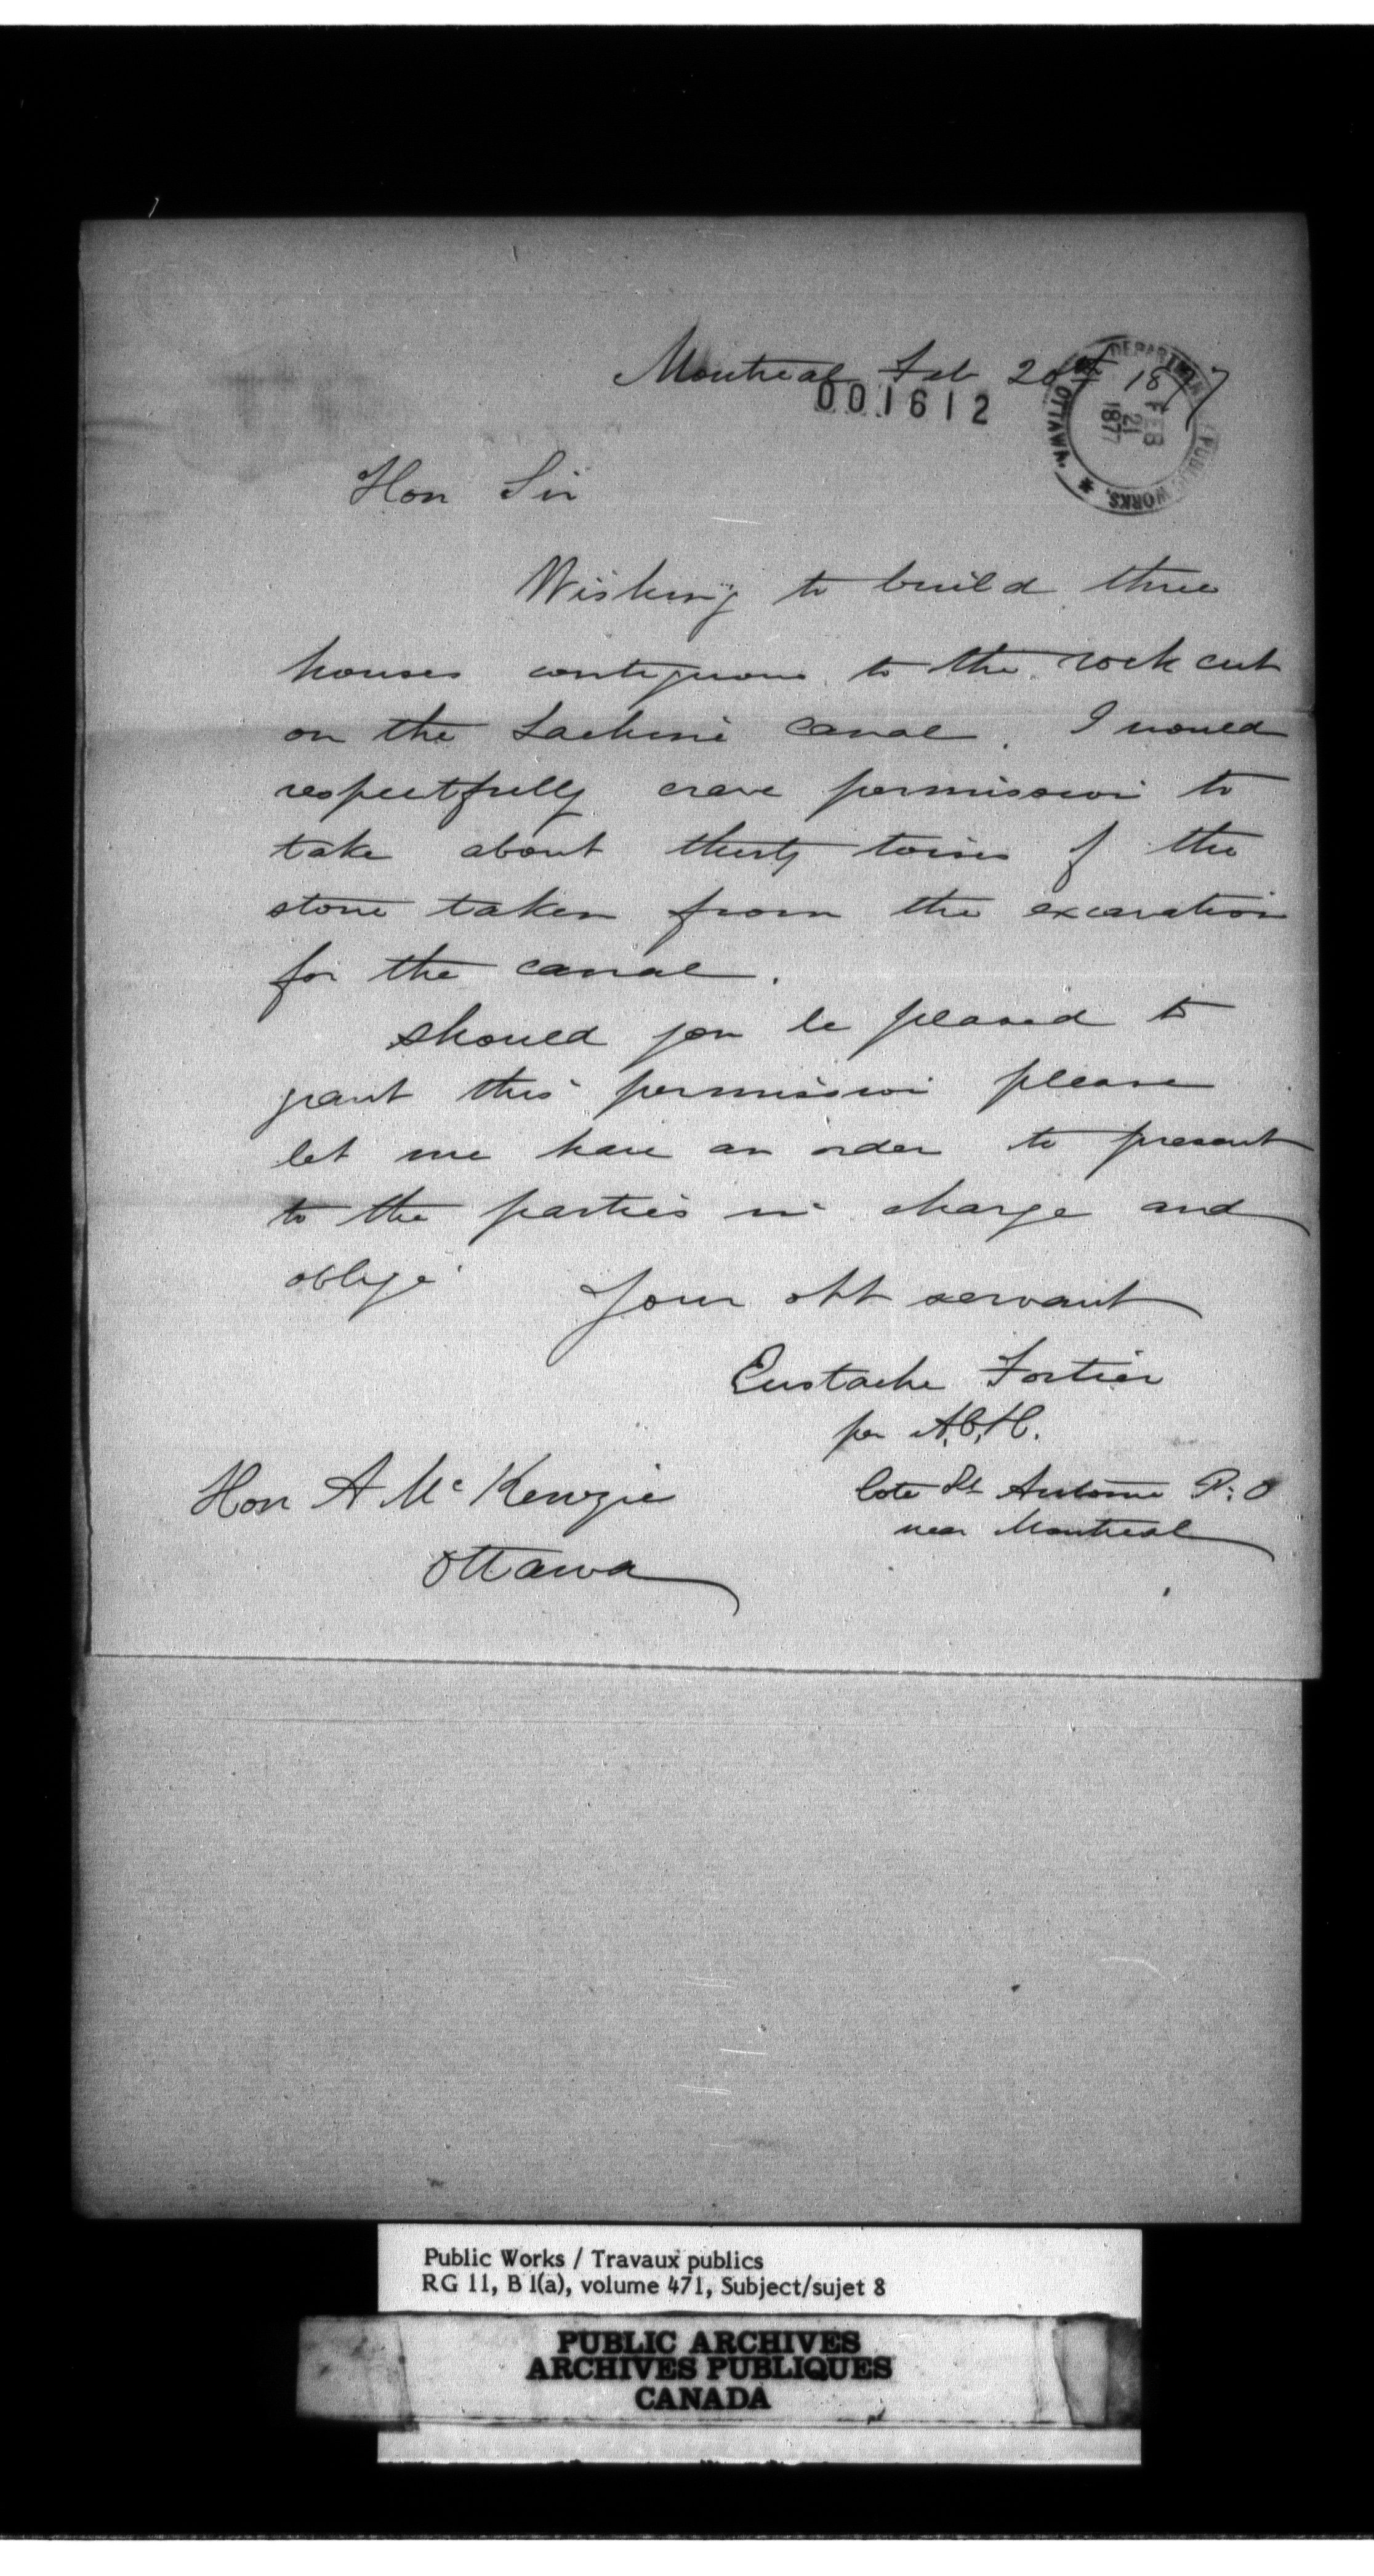 Montreal Feb 20th 1877
001612
DEPARTMENT PUBLIC WORKS, OTTAWA.
FEB
21
1877
Hon Sir
Wishing to build three
houses contiguous to the rock cut
on the Lachine canal. I would
respectfully crave permission to
take about thirty toises of the
stone taken from the excavation
for the canal.
Should you be pleased to
grant this permission please
let me have an order to present
to the parties in charge and
oblige
Your obt servant
Eustache Fortier
per A.C.H.
Cote St Antoine P.O
near Montreal
Hon A McKenzie
Ottawa
Public Works / Travaux publics
RG 11, B 1(a), volume 471, Subject/sujet 8
PUBLIC ARCHIVES
ARCHIVES PUBLIQUES
CANADA